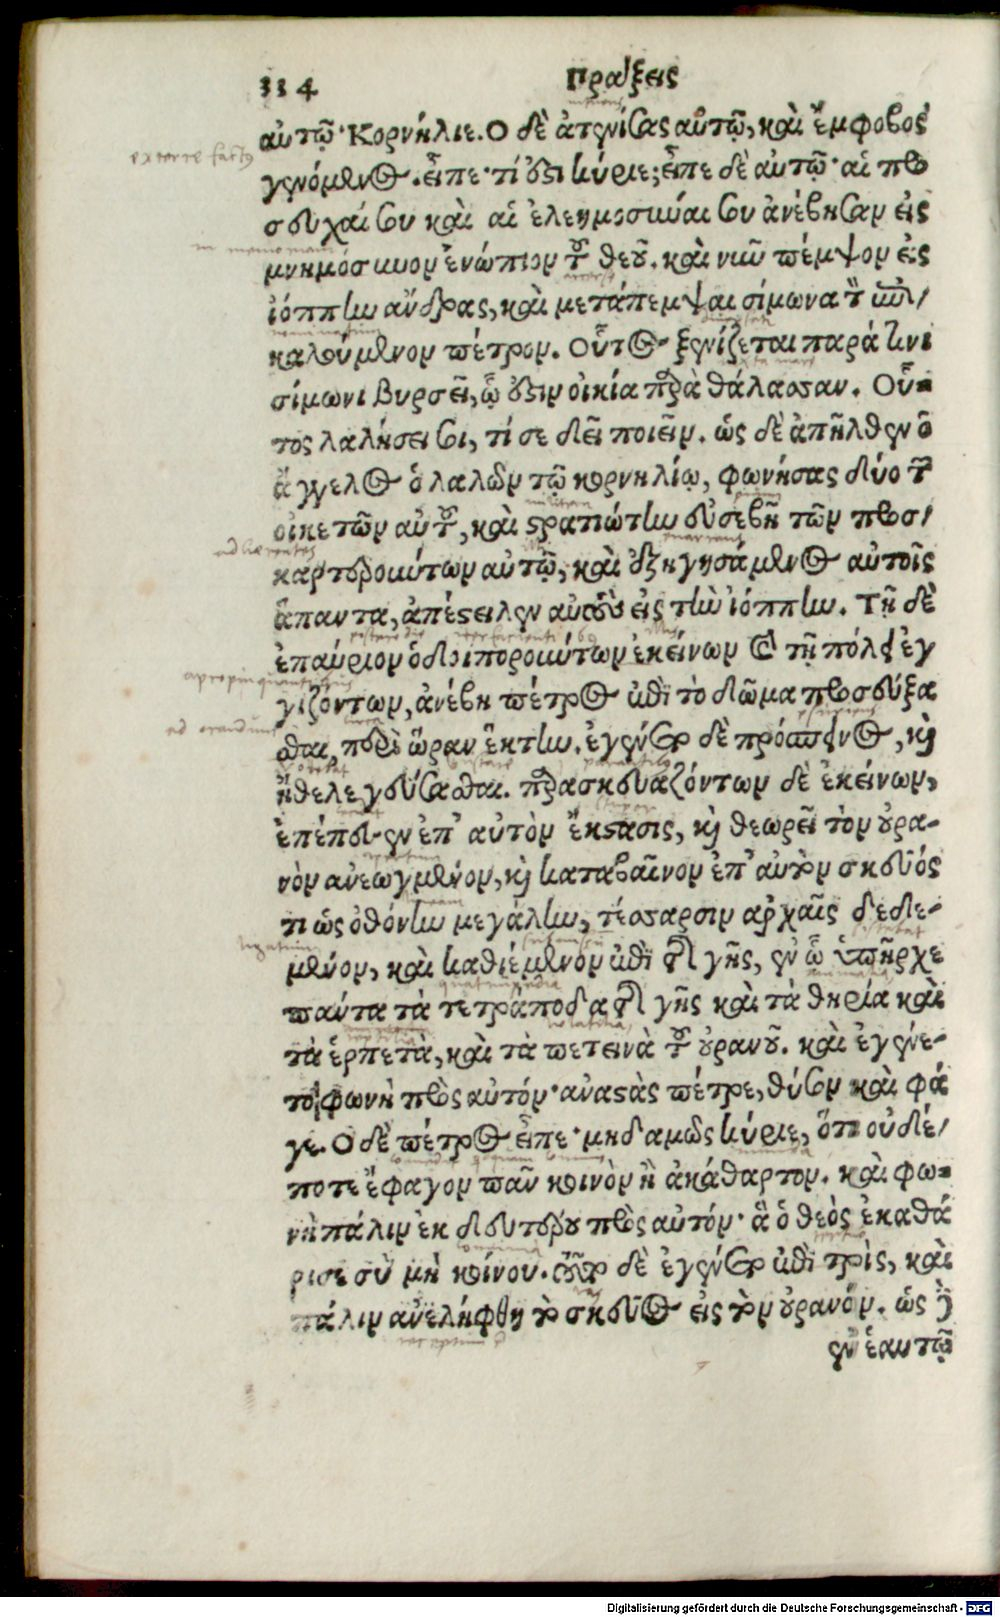 334 Πράξεις
αὐτῷ· Κορνήλιε. Ο δὲ ἀτενίσας αὐτῷ, καὶ ἔμφοβος
γενόμενος. εἶπε· τί ἐστι κύριε; εἶπε δὲ αὐτῷ· αἱ προ
σευχαί σου καὶ αἱ ἐλεημοσύναι σου ἀνέβησαν εἰς
μνημόσυνον ἐνώπιον τοῦ θεοῦ. καὶ νῦν πέμψον εἰς
ἰόππην ἄνδρας, καὶ μετάπεμψαι σίμωνα τὸν ἐπι/
καλούμενον πέτρον. Οὗτος ξενίζεται παρά τινι
σίμωνι βυρσεῖ, ᾧ ἐστιν οἰκία παρὰ θάλασσαν. Οὗ-
τος λαλήσει σοι, τί σε δεῖ ποιεῖν. ὡς δὲ ἀπῆλθεν ὁ
ἄγγελος ὁ λαλῶν τῷ κορνηλίῳ, φωνήσας δύο τῶν
οἰκετῶν αὐτοῦ, καὶ στρατιώτην εὐσεβῆ τῶν προσ/
καρτερούντων αὐτῷ, καὶ ἐξηγησάμενος αὐτοῖς
ἅπαντα, ἀπέστειλεν αὐτοὺς εἰς τὴν ἰόππην. Τῇ δὲ
ἐπαύριον ὁδοιπορούντων ἐκείνων καὶ τῇ πόλει ἐγ
γιζόντων, ἀνέβη πέτρος ἐπὶ τὸ δῶμα προσεύξα
σθαι, περὶ ὥραν ἕκτην. ἐγένετο δὲ πρόσπεινος, καὶ
ἤθελε γεύσασθαι. παρασκευαζόντων δὲ ἐκείνων,
ἐπέπεσεν ἐπ' αὐτὸν ἔκστασις, καὶ θεωρεῖ τὸν οὐρα-
νὸν ἀνεωγμένον, καὶ καταβαῖνον ἐπ' αὐτὸν σκεῦός
τι ὡς ὀθόνην μεγάλην, τέσσαρσιν ἀρχαῖς δεδε-
μένον, καὶ καθιέμενον ἐπὶ τῆς γῆς, ἐν ᾧ ὑπῆρχε
πάντα τὰ τετράποδα τῆς γῆς καὶ τὰ θηρία καὶ
τὰ ἑρπετὰ, καὶ τὰ πετεινὰ τοῦ οὐρανοῦ. καὶ ἐγένε-
το φωνὴ πρὸς αὐτόν· ἀναστὰς πέτρε, θῦσον καὶ φά
γε. Ο δὲ πέτρος εἶπε· μηδαμῶς κύριε, ὅτι οὐδέ/
ποτε ἔφαγον πᾶν κοινὸν ἢ ἀκάθαρτον. καὶ φω-
νὴ πάλιν ἐκ δευτέρου πρὸς αὐτόν· ἃ ὁ θεὸς ἐκαθά
ρισε σὺ μὴ κοίνου. τοῦτο δὲ ἐγένετο ἐπὶ τρὶς, καὶ
πάλιν ἀνελήφθη τὸ σκεῦος εἰς τὸν οὐρανόν. ὡς δὲ
ἐν ἑαυτῷ
exterrefactus
in memoriam
ad orandum
Digitalisierung gefördert durch die Deutsche Forschungsgemeinschaft - DFG